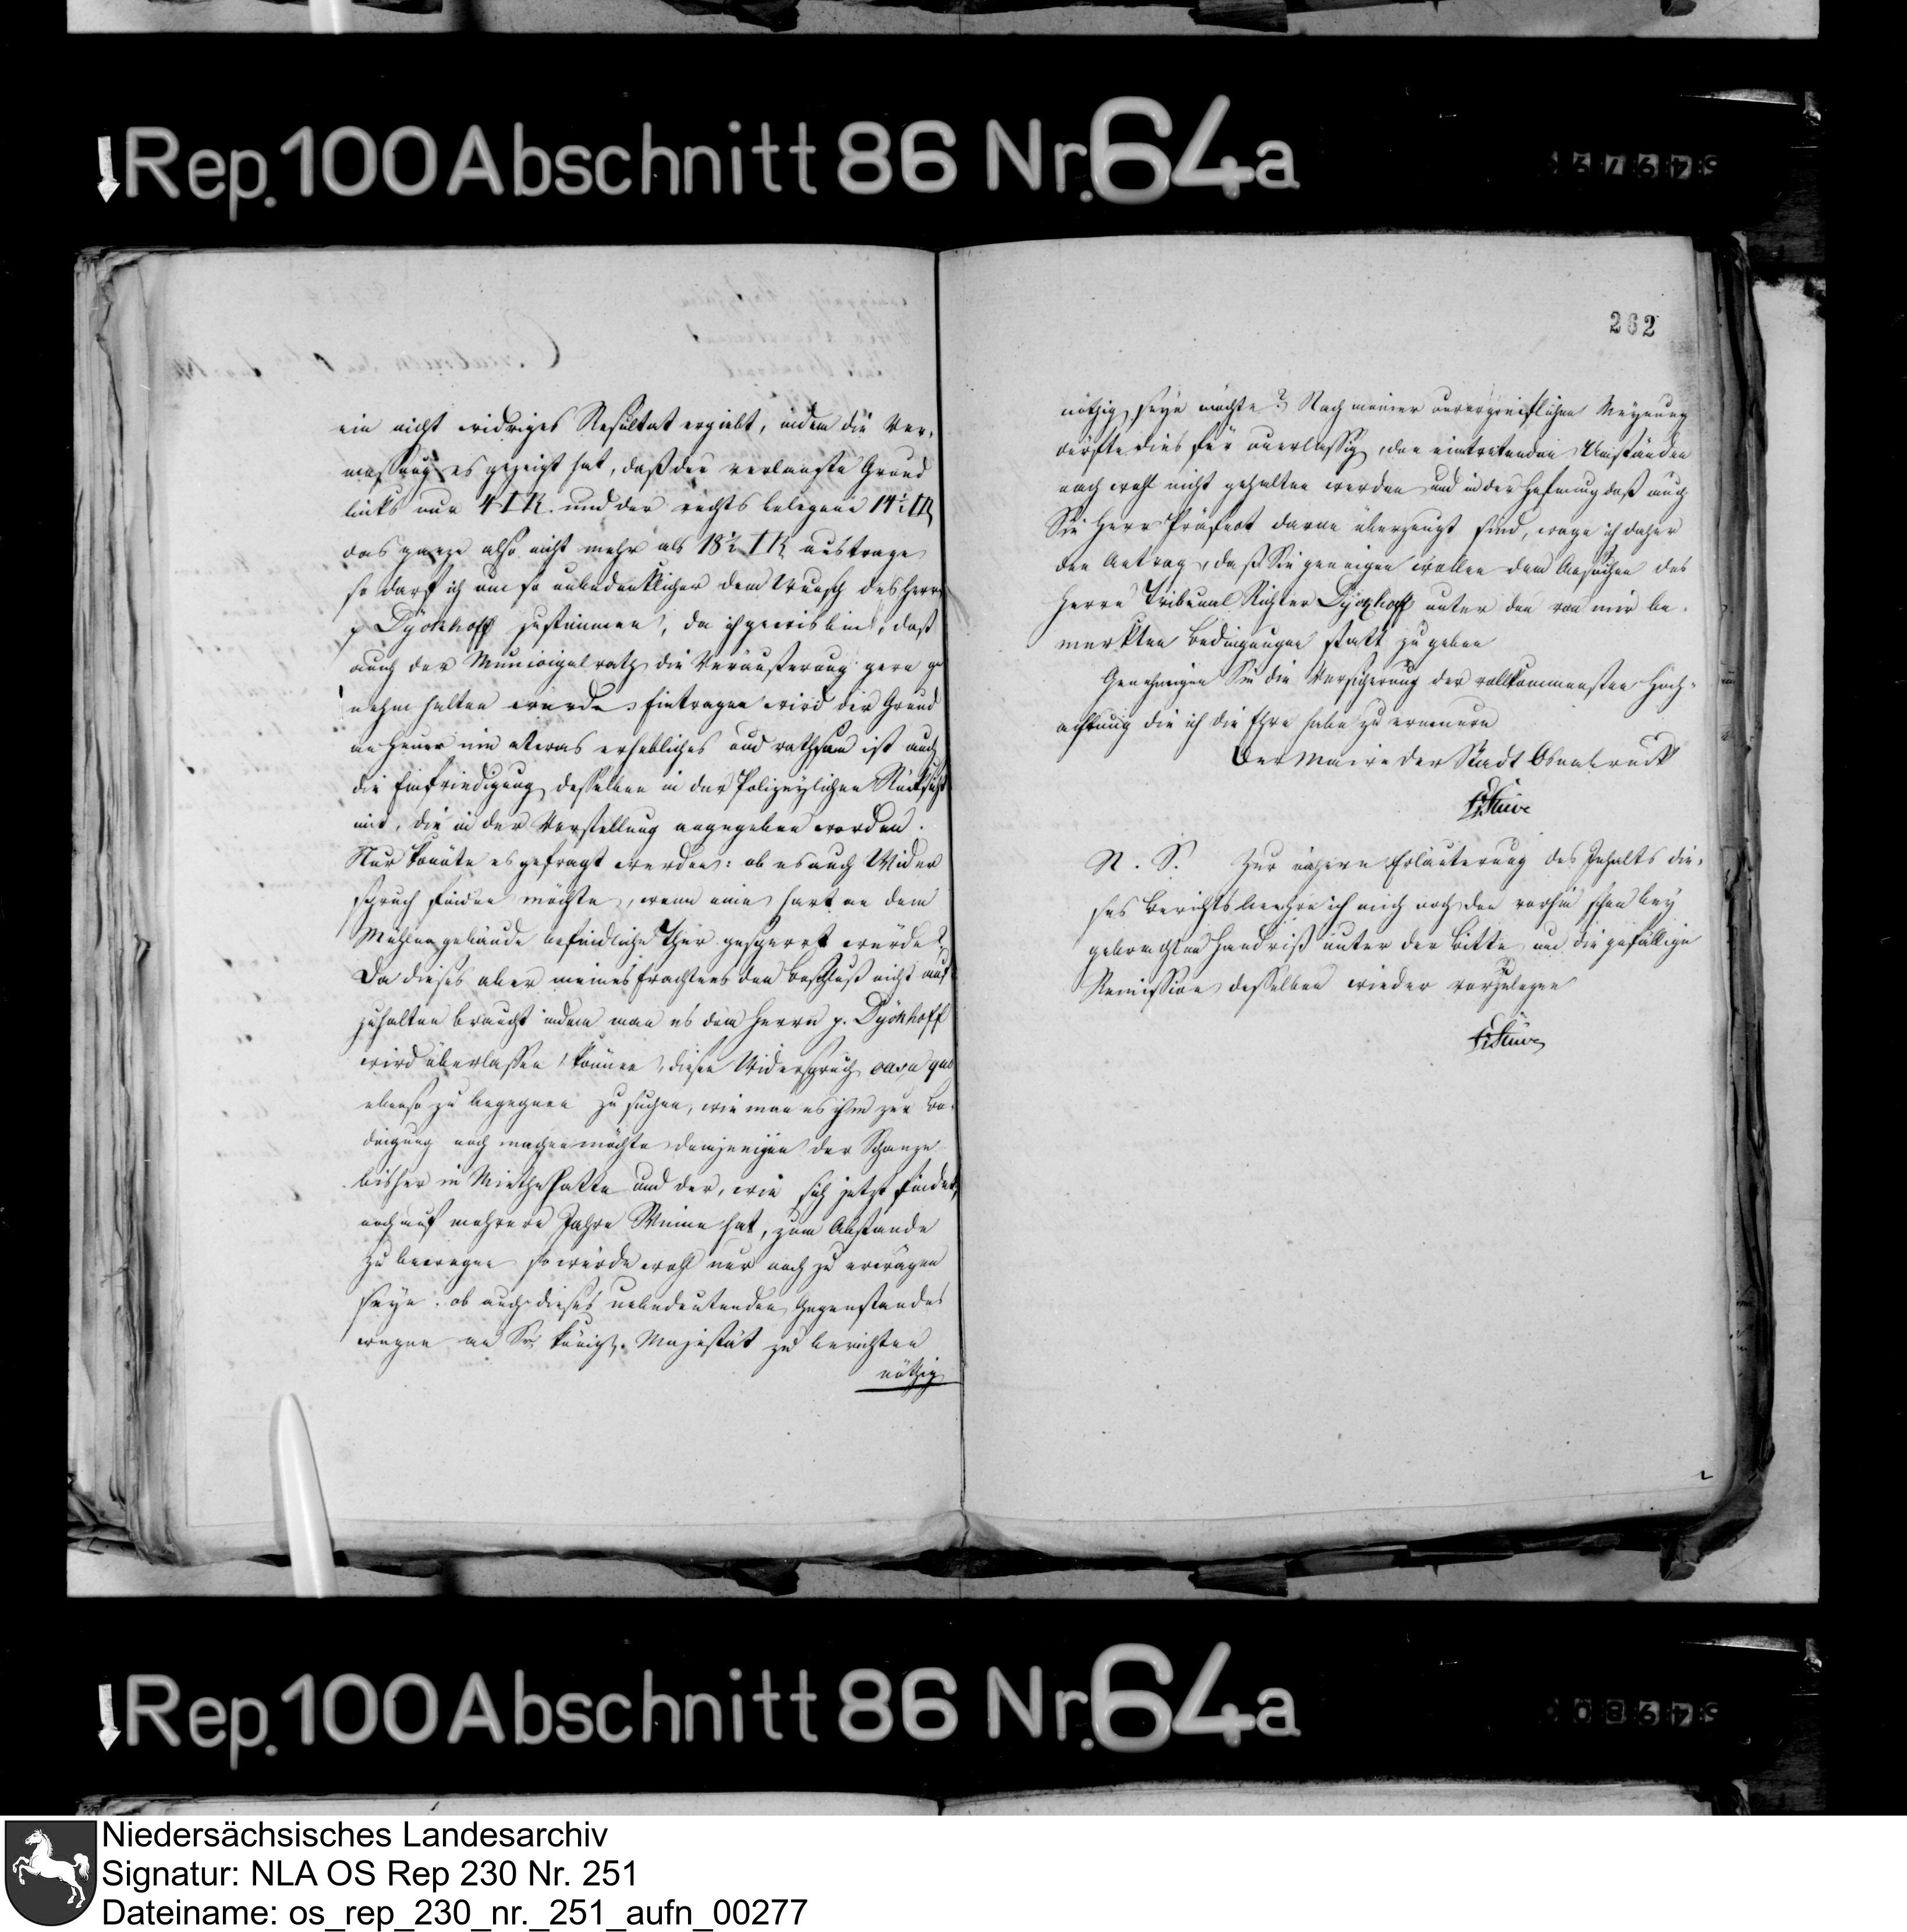 Rep. 100 Abschnitt 86 Nr. 64a
ein nicht widriges Resultat ergiebt, indem die Ver-
messung es gezeigt hat, daß der verlangte Grund
links nur 4 □R. und der rechts belegene 14½ □R
das ganze also nicht mehr als 18½ □R austrage
so darf ich um so unbedenklicher dem Wunsch des Herrn
p Dyckhoff zustimmen, da ich gewis bin, daß
auch der Municipalrath die Veräußerung gern ge
nehm halten würde. Eintragen wird der Grund
an Heuer nie etwas erhebliches und rathsam ist auch
die Einfriedigung desselben in der Polizeylichen Rücksicht
mit, die in der Vorstellung angegeben worden.
Nur könte es gefragt werden: ob es auch Wider
spruch finden möchte, wenn eine hart an dem
Mühlengebäude befindliche Thür gesperrt würde?
Da dieses aber meines Erachtens den Beschluß nicht auf
zuhalten braucht indem man es dem Herrn p. Dyckhoff
wird überlassen können, diesen Widerspruch casu quo
ebenso zu begegnen zu suchen, wie man es ihm zur Be-
dingung noch machen möchte demjenigen der Schanze
bisher in Miethe hatte und der, wie sich jetzt findet,
noch auf mehrere Jahre Winne hat, zum Abstande
zu bewegen so würde wohl nur noch zu erwägen
seyn: ob auch dieses unbedeutenden Gegenstandes
wegen an Sr. Königl. Majestät zu berichten
nöthig
262
nöthig seyn möchte? Nach meiner unvorgreiflichen Meynung
dürfte dies für unerlässig, den eintretenden Umständen
nach wohl nicht gehalten werden und in der Hofnung daß auch
Sie Herr Präfect davon überzeugt sind, wage ich daher
den Antrag, daß Sie geneigen wollen dem Ansuchen des
Herrn Tribunal Richter Dyckhoff unter den von mir be-
merkten Bedingungen statt zu geben
Genehmigen Sie die Versicherung der vollkommensten Hoch-
achtung die ich die Ehre habe zu erneuern
Der Maire der Stadt Osnabrück
Stüve
N. S. Zur nähern Erläuterung des Inhalts die-
ses Berichts beehre ich mich noch den vorhin schon bey
gebrachten Handriß unter der Bitte um die gefällige
Remission desselben wieder vorzulegen
Stüve
Rep. 100 Abschnitt 86 Nr. 64a
Niedersächsisches Landesarchiv
Signatur: NLA OS Rep 230 Nr. 251
Dateiname: os_rep_230_nr._251_aufn_00277